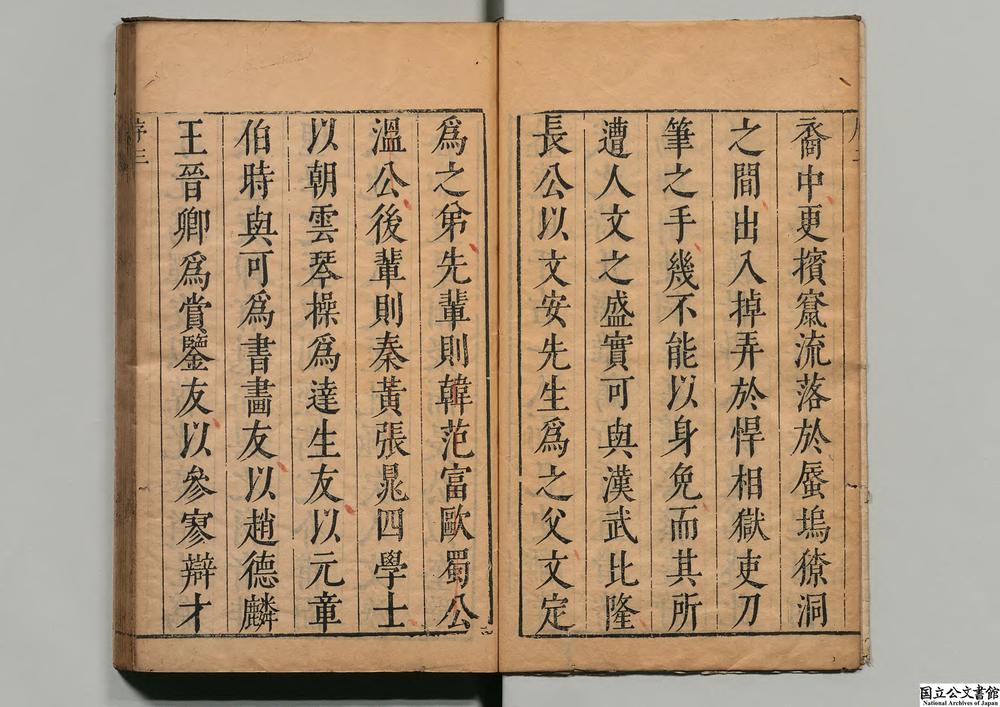 裔中更擯竄流落於蜑塢獠洞
之間出入掉弄於悍相獄吏刀
筆之手幾不能以身免而其所
遭人文之盛實可與漢武比隆
長公以文安先生爲之父文定
爲之弟先輩則韓范富歐蜀公
溫公後輩則秦黃張晁四學士
以朝雲琴操爲達生友以元章
伯時與可爲書畫友以趙德麟
王晉卿爲賞鑒友以參寥辯才
序三
国立公文書館
National Archives of Japan